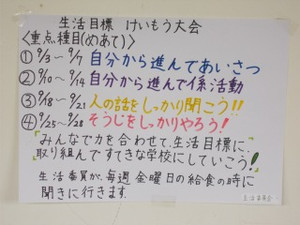 生活目標 けいもう大会
<重点種目(めあて)>
① 9/3〜9/7 自分から進んであいさつ
② 9/10〜9/14 自分から進んで係活動
③ 9/18〜9/21 人の話をしっかり聞こう!!
④ 9/25〜9/28 そうじをしっかりやろう!
「みんなで力を合わせて、生活目標に
取り組んですてきな学校にしていこう!」
生活委員が、毎週金曜日の給食の時に
聞きに行きます.
生活委員会